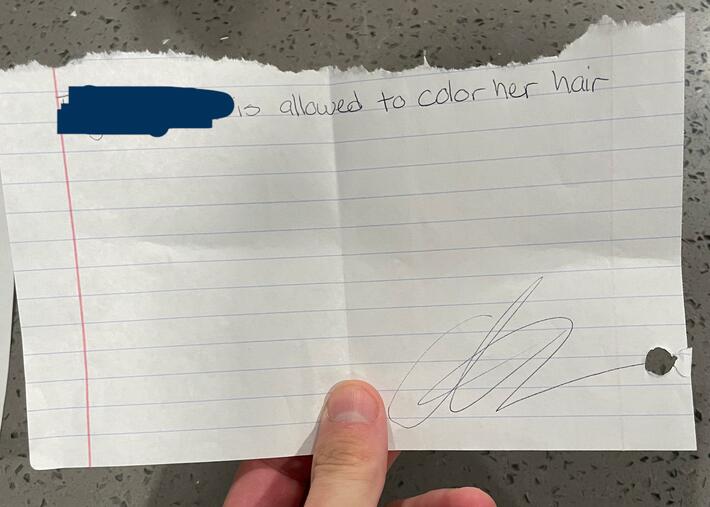 is allowed to color her hair